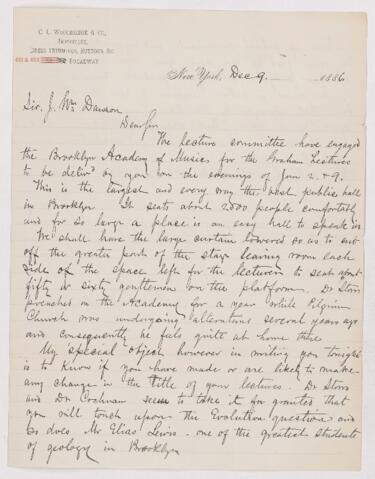 C. L. WOODBRIDGE & CO.,
IMPORTERS,
DRESS TRIMMINGS, BUTTONS &C
BROADWAY
New York, Dec 9 1886
Sir J. Wm Dawson
Dear Sir
The lecture committee have engaged
the Brooklyn Academy of Music for the Graham Lectures
to be deliv'd by you on the evenings of Jan 2 & 9.
This is the largest and every way the best public hall
in Brooklyn It seats about 2500 people comfortably
and for so large a place is an easy hall to speak in
We shall have the large curtain lowered so as to cut
off the greater part of the stage leaving room each
side of the space left for the lecturer to seat about
fifty or sixty gentlemen on the platform. Dr Storrs
preached in the Academy for a year while Pilgrim
Church was undergoing alterations several years ago
and consequently he feels quite at home there
My special object however in writing you tonight
is to know if you have made or are likely to make
any change in the title of your lectures. Dr Storrs
and Dr Cochran seem to take it for granted that
you will touch upon the Evolution question and
so does Mr Elias Lewis - one of the greatest students
of geology in Brooklyn